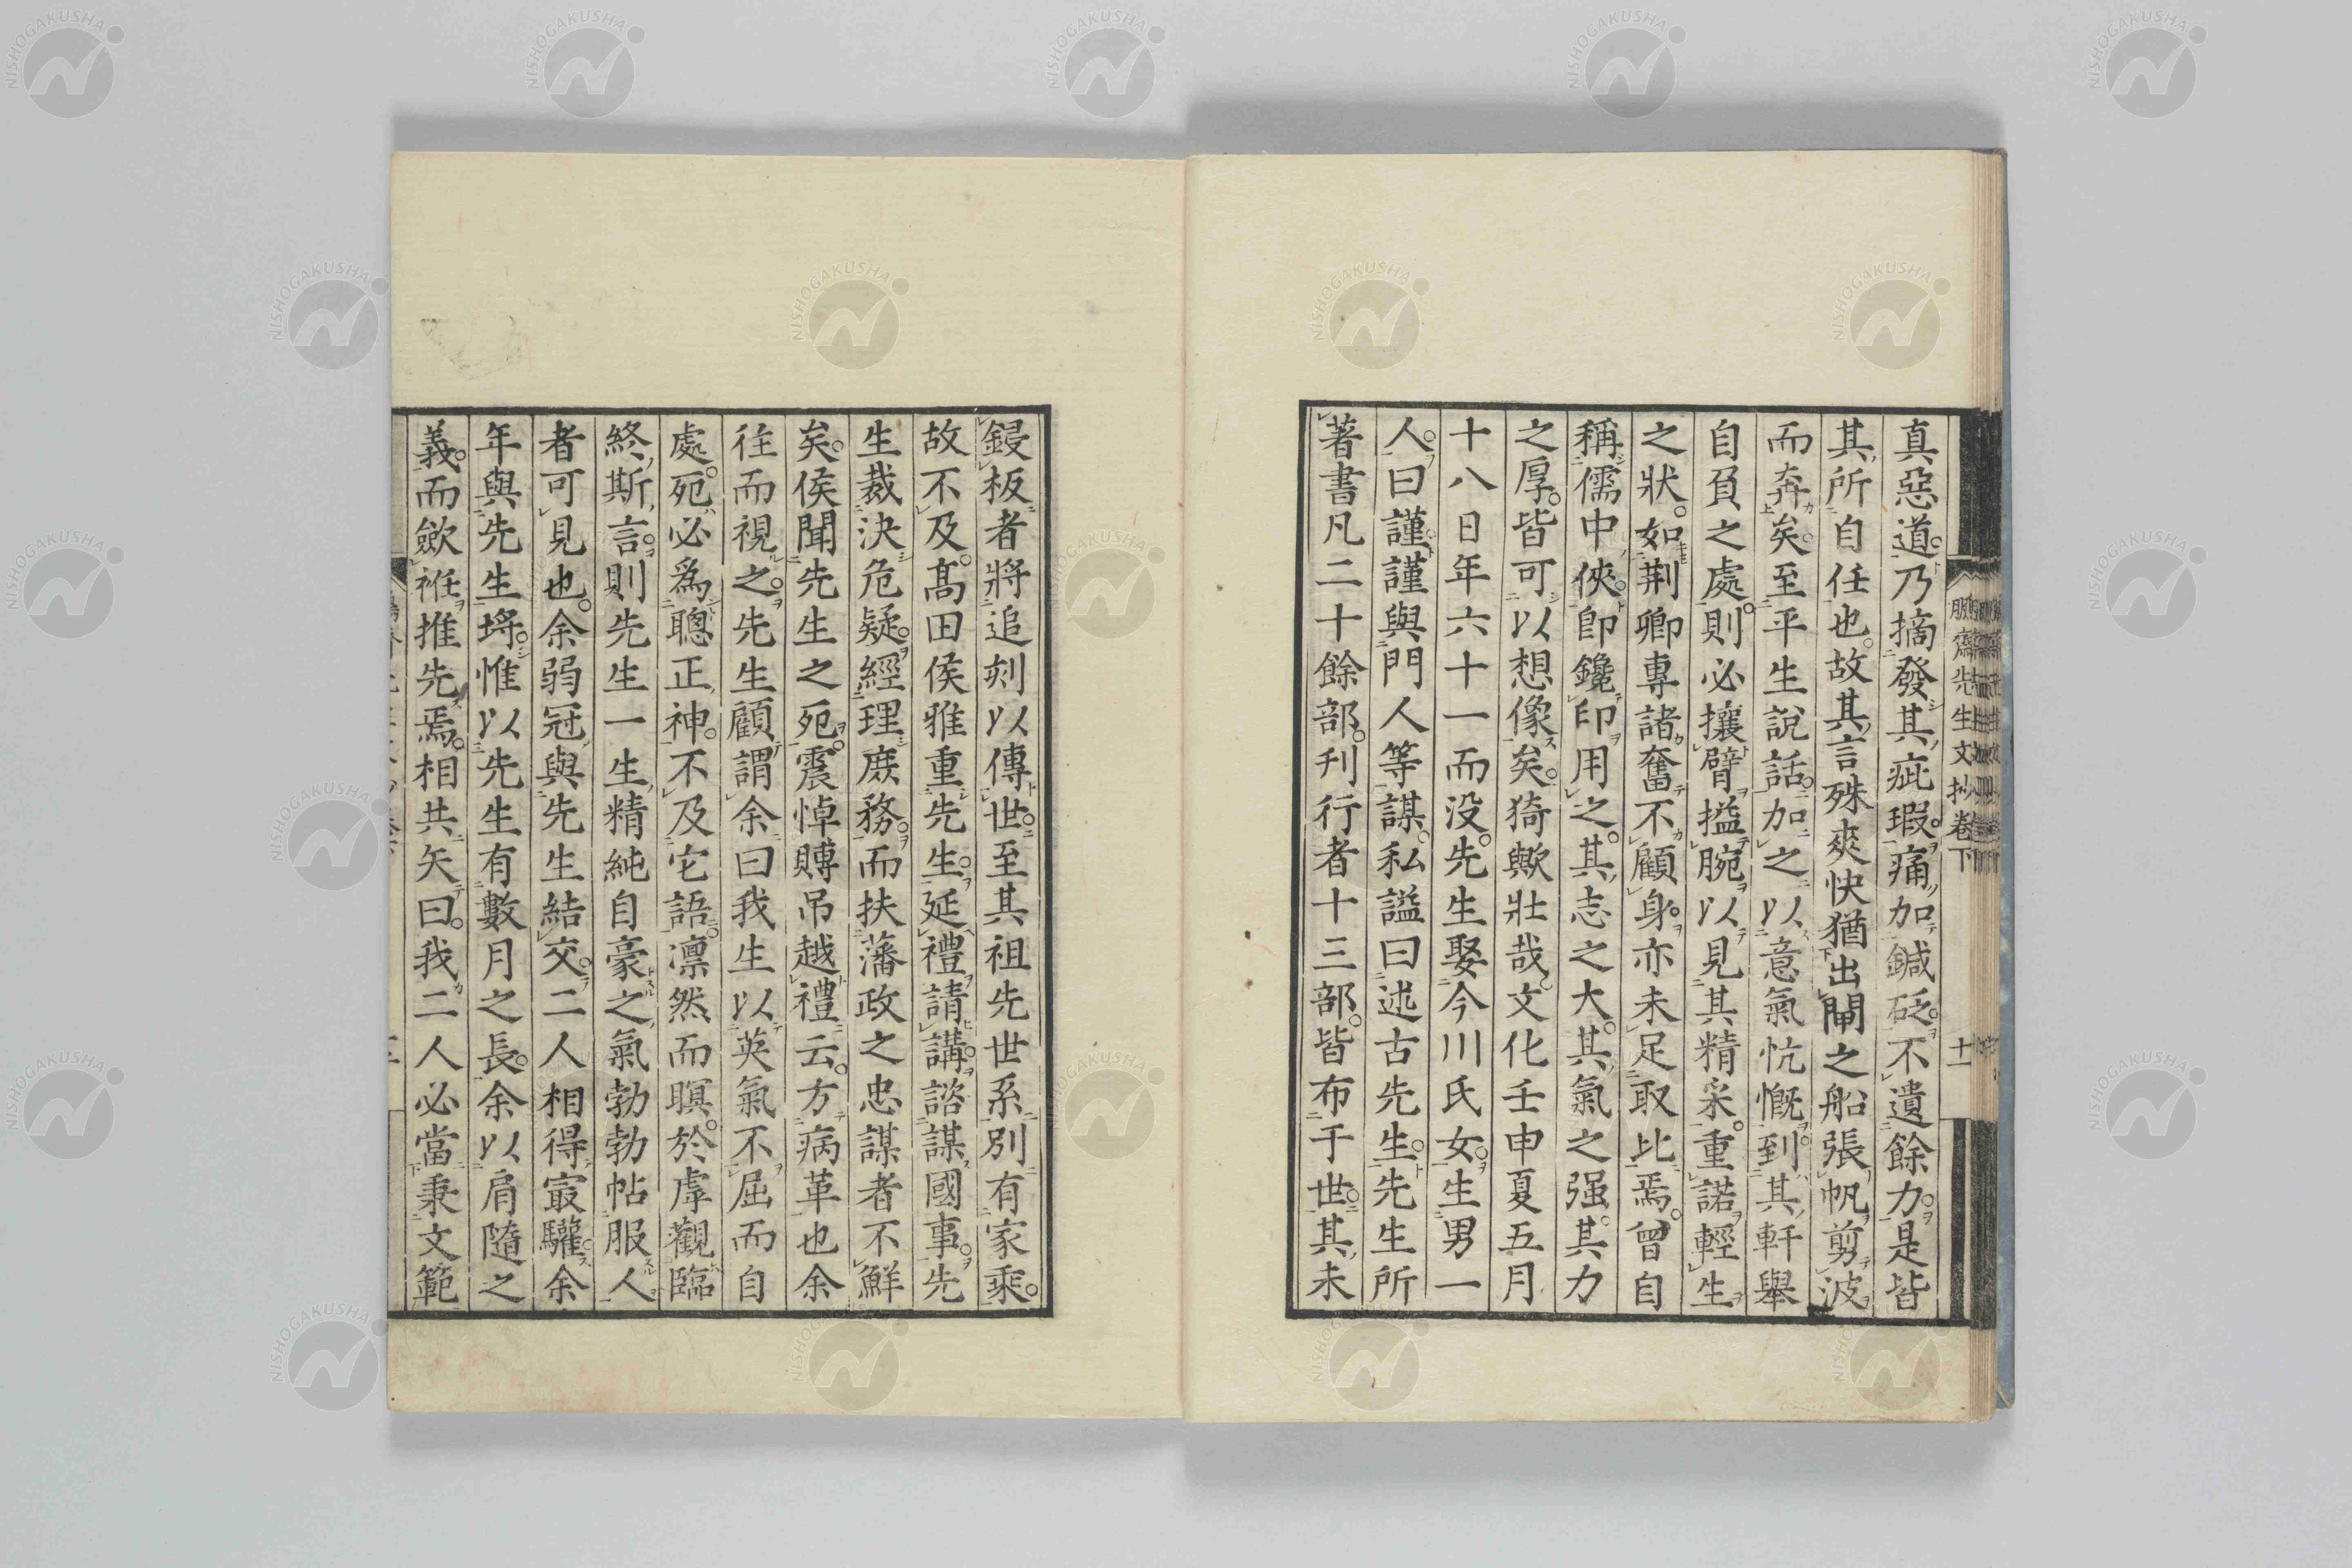 真惡道乃摘發其疵瑕痛加鍼砭不遺餘力是皆
其所自任也故其言殊爽快猶出閘之船張帆剪波
而奔矣至平生說話加之以意氣忼慨到其軒舉
自負之處則必攘臂搤腕以見其精采重諾輕生
之狀如荆卿專諸奮不顧身亦未足取比焉曾自
稱儒中俠卽鑱印用之其志之大其氣之强其力
之厚皆可以想像矣猗歟壯哉文化壬申夏五月
十八日年六十一而没先生娶今川氏女生男一
人曰謹謹與門人等謀私謚曰述古先生先生所
著書凡二十餘部刋行者十三部皆布于世其未
鋟板者將追刻以傳世至其祖先世系別有家乘
故不及高田侯雅重先生延禮請講諮謀國事先
生裁決危疑經理庶務而扶藩政之忠謀者不鮮
矣侯聞先生之死震悼賻吊越禮云方病革也余
往而視之先生顧謂余曰我生以英氣不屈而自
處死必爲聰正神不及它語凛然而瞑於虖觀臨
終斯言則先生一生精純自豪之氣勃勃帖服人
者可見也余弱冠與先生結交二人相得㝡驩余
年與先生埓惟以先生有數月之長余以肩隨之
義而歛袵推先焉相共矢曰我二人必當秉文範
鵬齋先生文抄卷下
十一
NISHOGAKUSHA